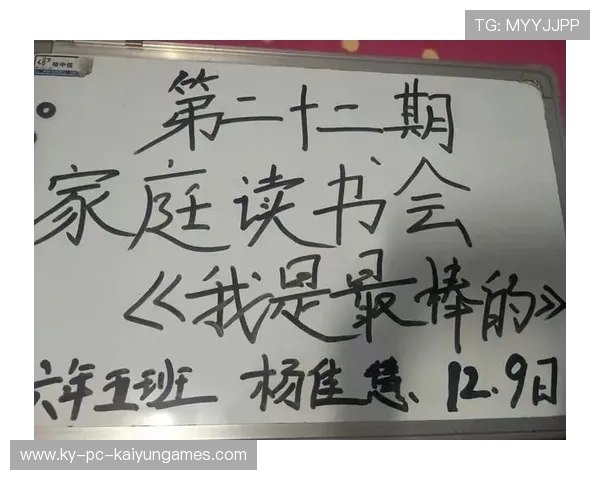 TG: MYYJJPP
第二十二期
家庭读书会
《我是最棒的》
六年五班 杨佳慧、12.9日
www.ky-pc-kaiyungames.com